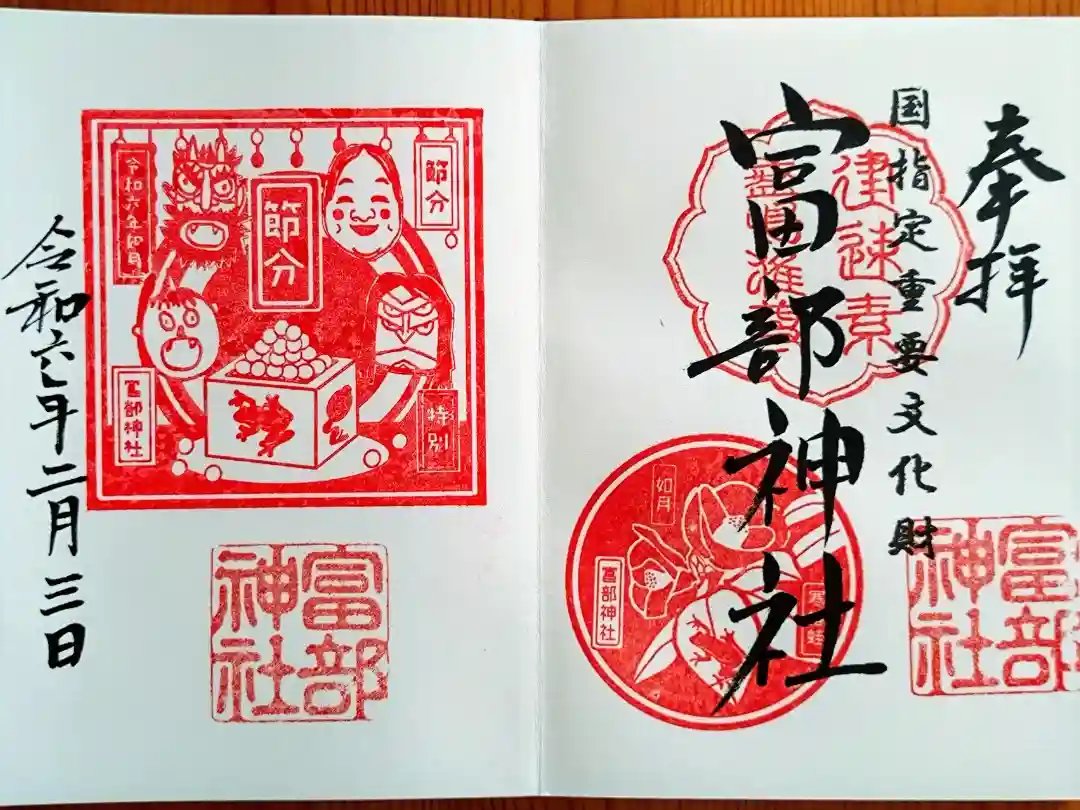 奉拝
国指定重要文化財
建速素
富部神社
如月
富部神社
富部
神社
節分
節分
令和六年如月
特別
富部神社
富部
神社
令和六年二月三日